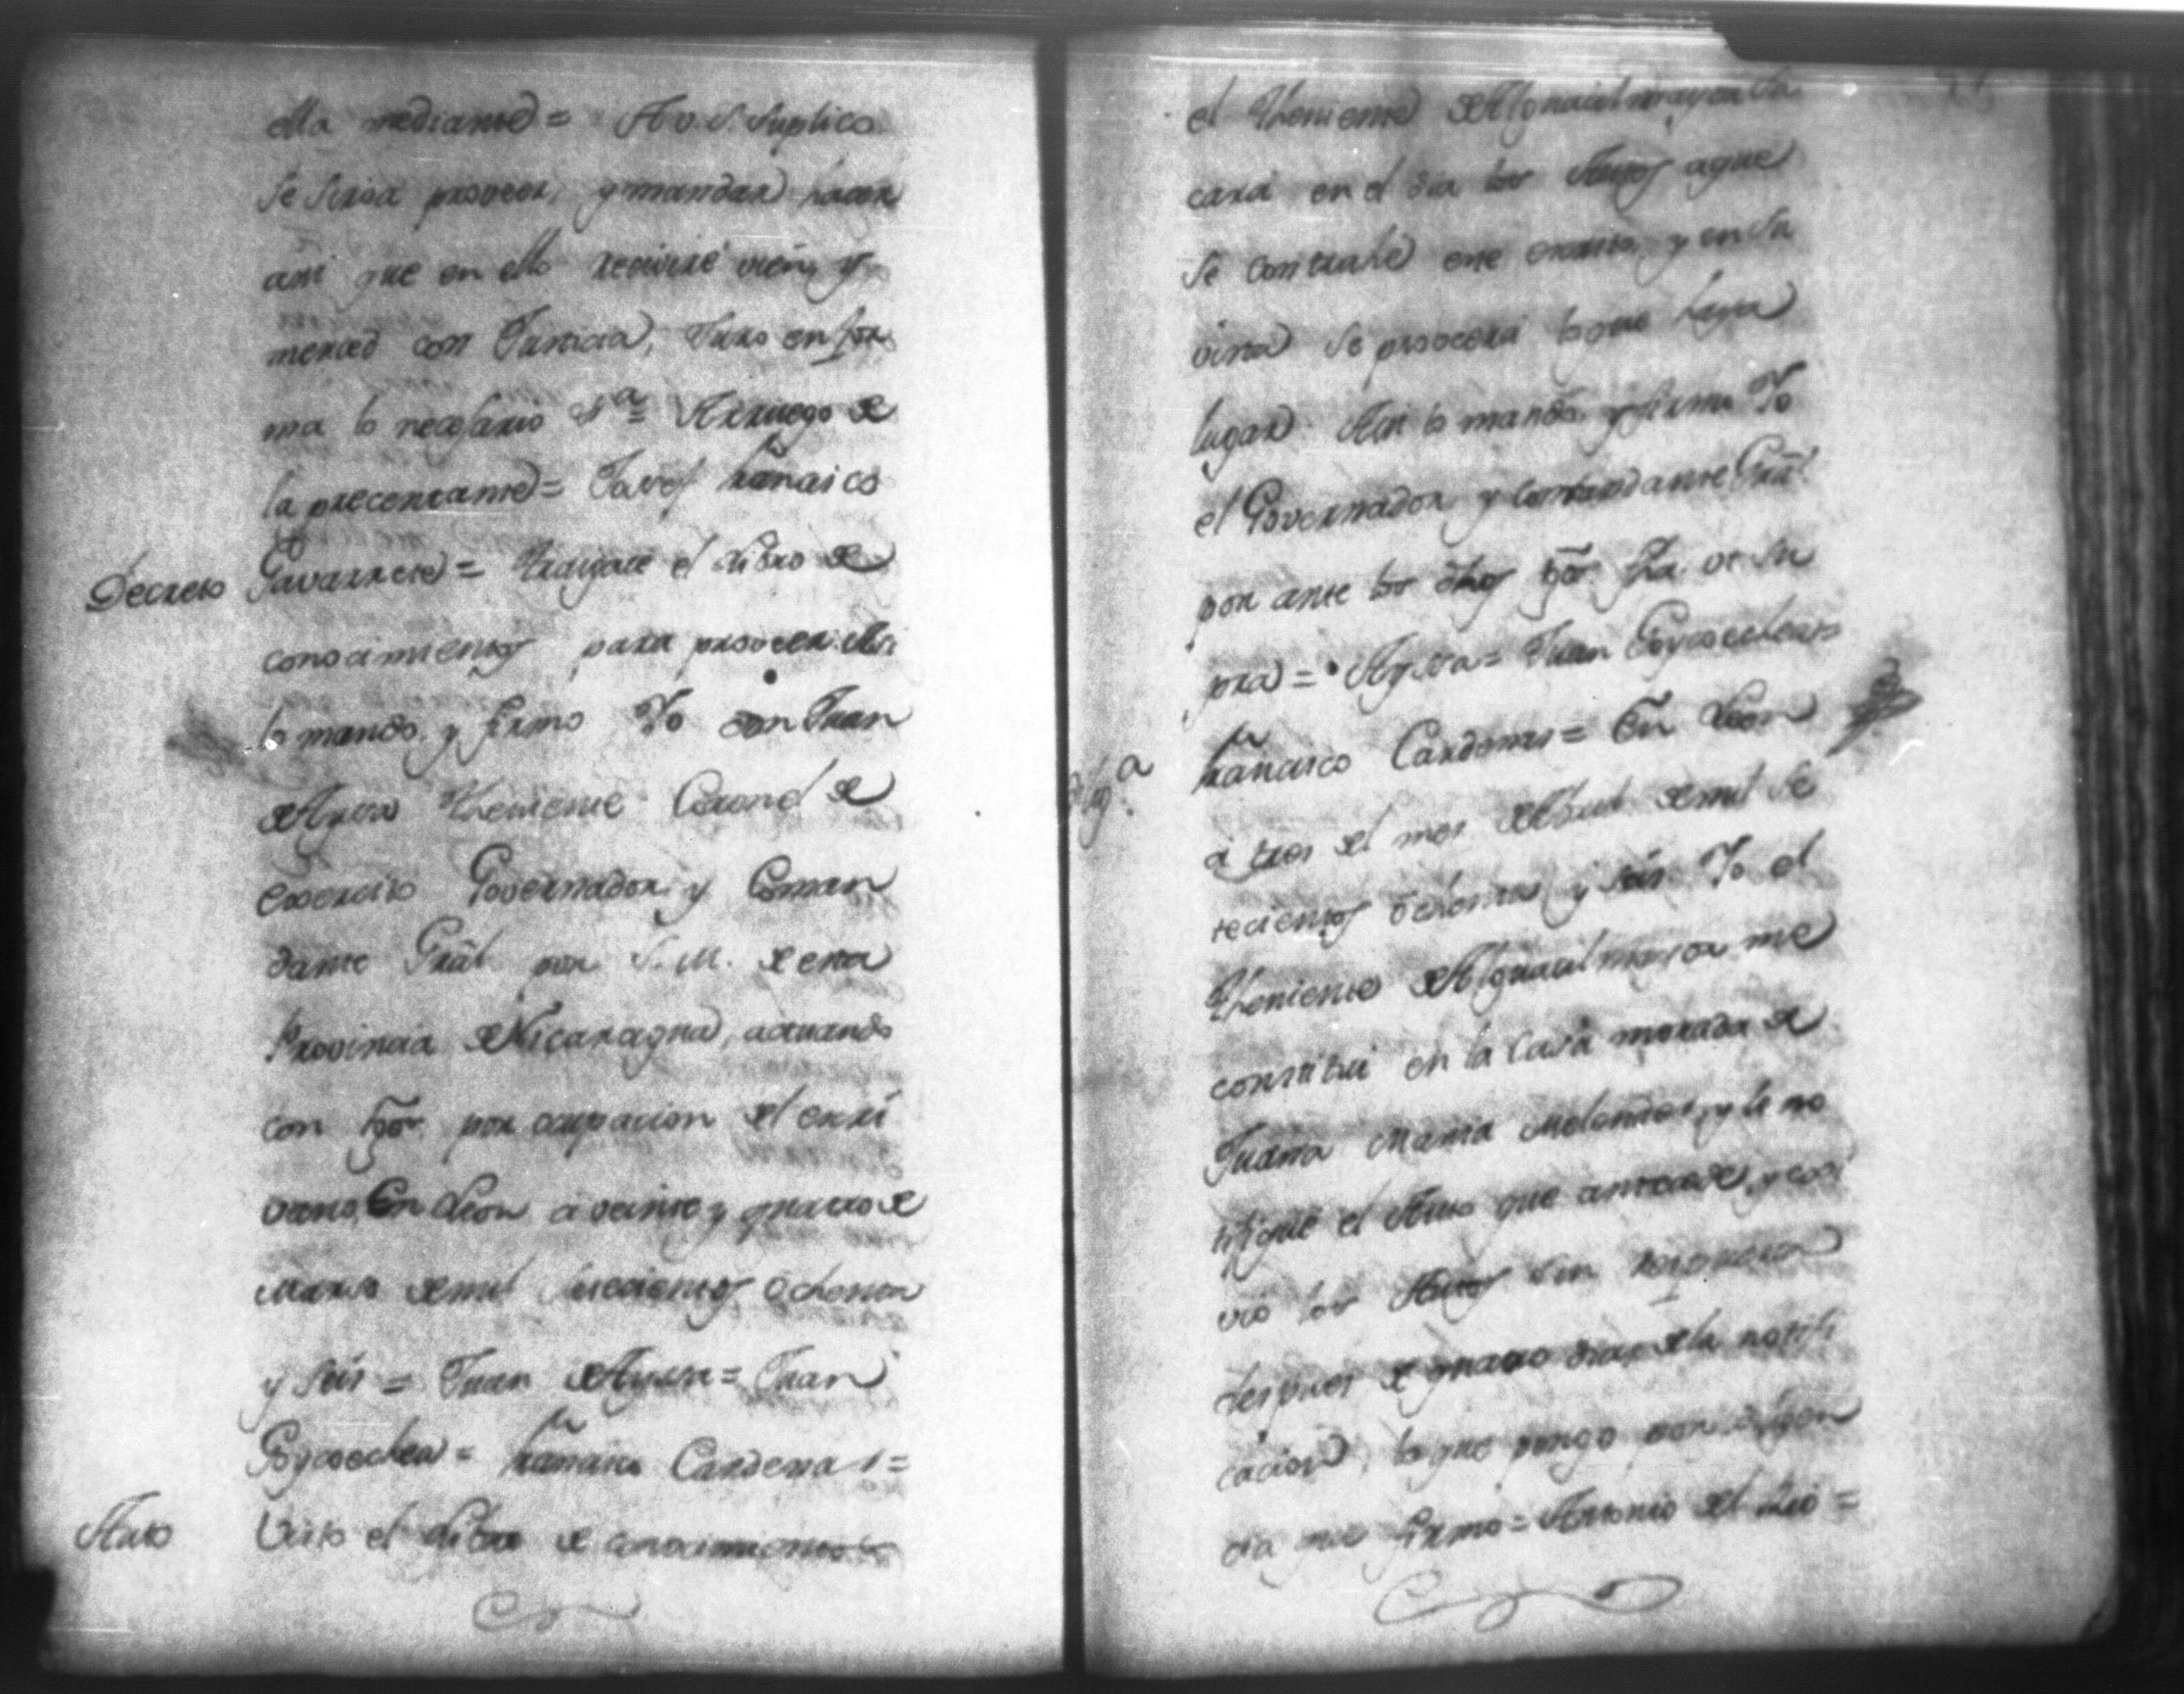 ella mediante = A v. S. Suplico
Se Sirva proveer, y mandar hacer
asi que en ello recivire vien, y
merced con Justicia, Juro en for
ma lo necesario &ª = A rruego de
la precentante = Javos Franᶜᵒ
Decreto Gavarrete = Traigase el Libro de
conocimientos para proveer. Asi
lo mando, y firmo Yo don Juan
de Aysa Theniente Coronel de
Exercito Governador, y Coman
dante Gràl por S. M. de esta
Provincia de Nicaragua, actuando
con tgoˢ por ocupacion del escri
vano. En Leon a veinte y quatro de
Marzo de mil Setecientos ochenta
y Seis = Juan de Aysa = Juan
Goycoechea = Francisco Cardenas =
Auto Visto el Libro de conocimientos
el Theniente de Alguacil mayor Sa
cara en el dia los Autos aque
Se contrahe este escrito, y en Su
vista Se proveera lo que haya
lugar. Asi lo mando, y firmo Yo
el Governador y Comandante Gràl
por ante los dhos tgoˢ
pra = Aysa = Juan Goycoechea =
Francisco Cardenas = En Leon
a tres del mes de Abril de mil Se
tecientos ochenta, y Seis Yo el
Theniente de Alguacil mayor me
constitui en la Casa morada de
Juana Maria Melendes, y le no
tifiquè el Auto que antecede, y
vio los Autos Sin
despues de quatro dias de la notifi
cacion, lo que pongo por diligen
cia que firmo = Antonio del Rio =